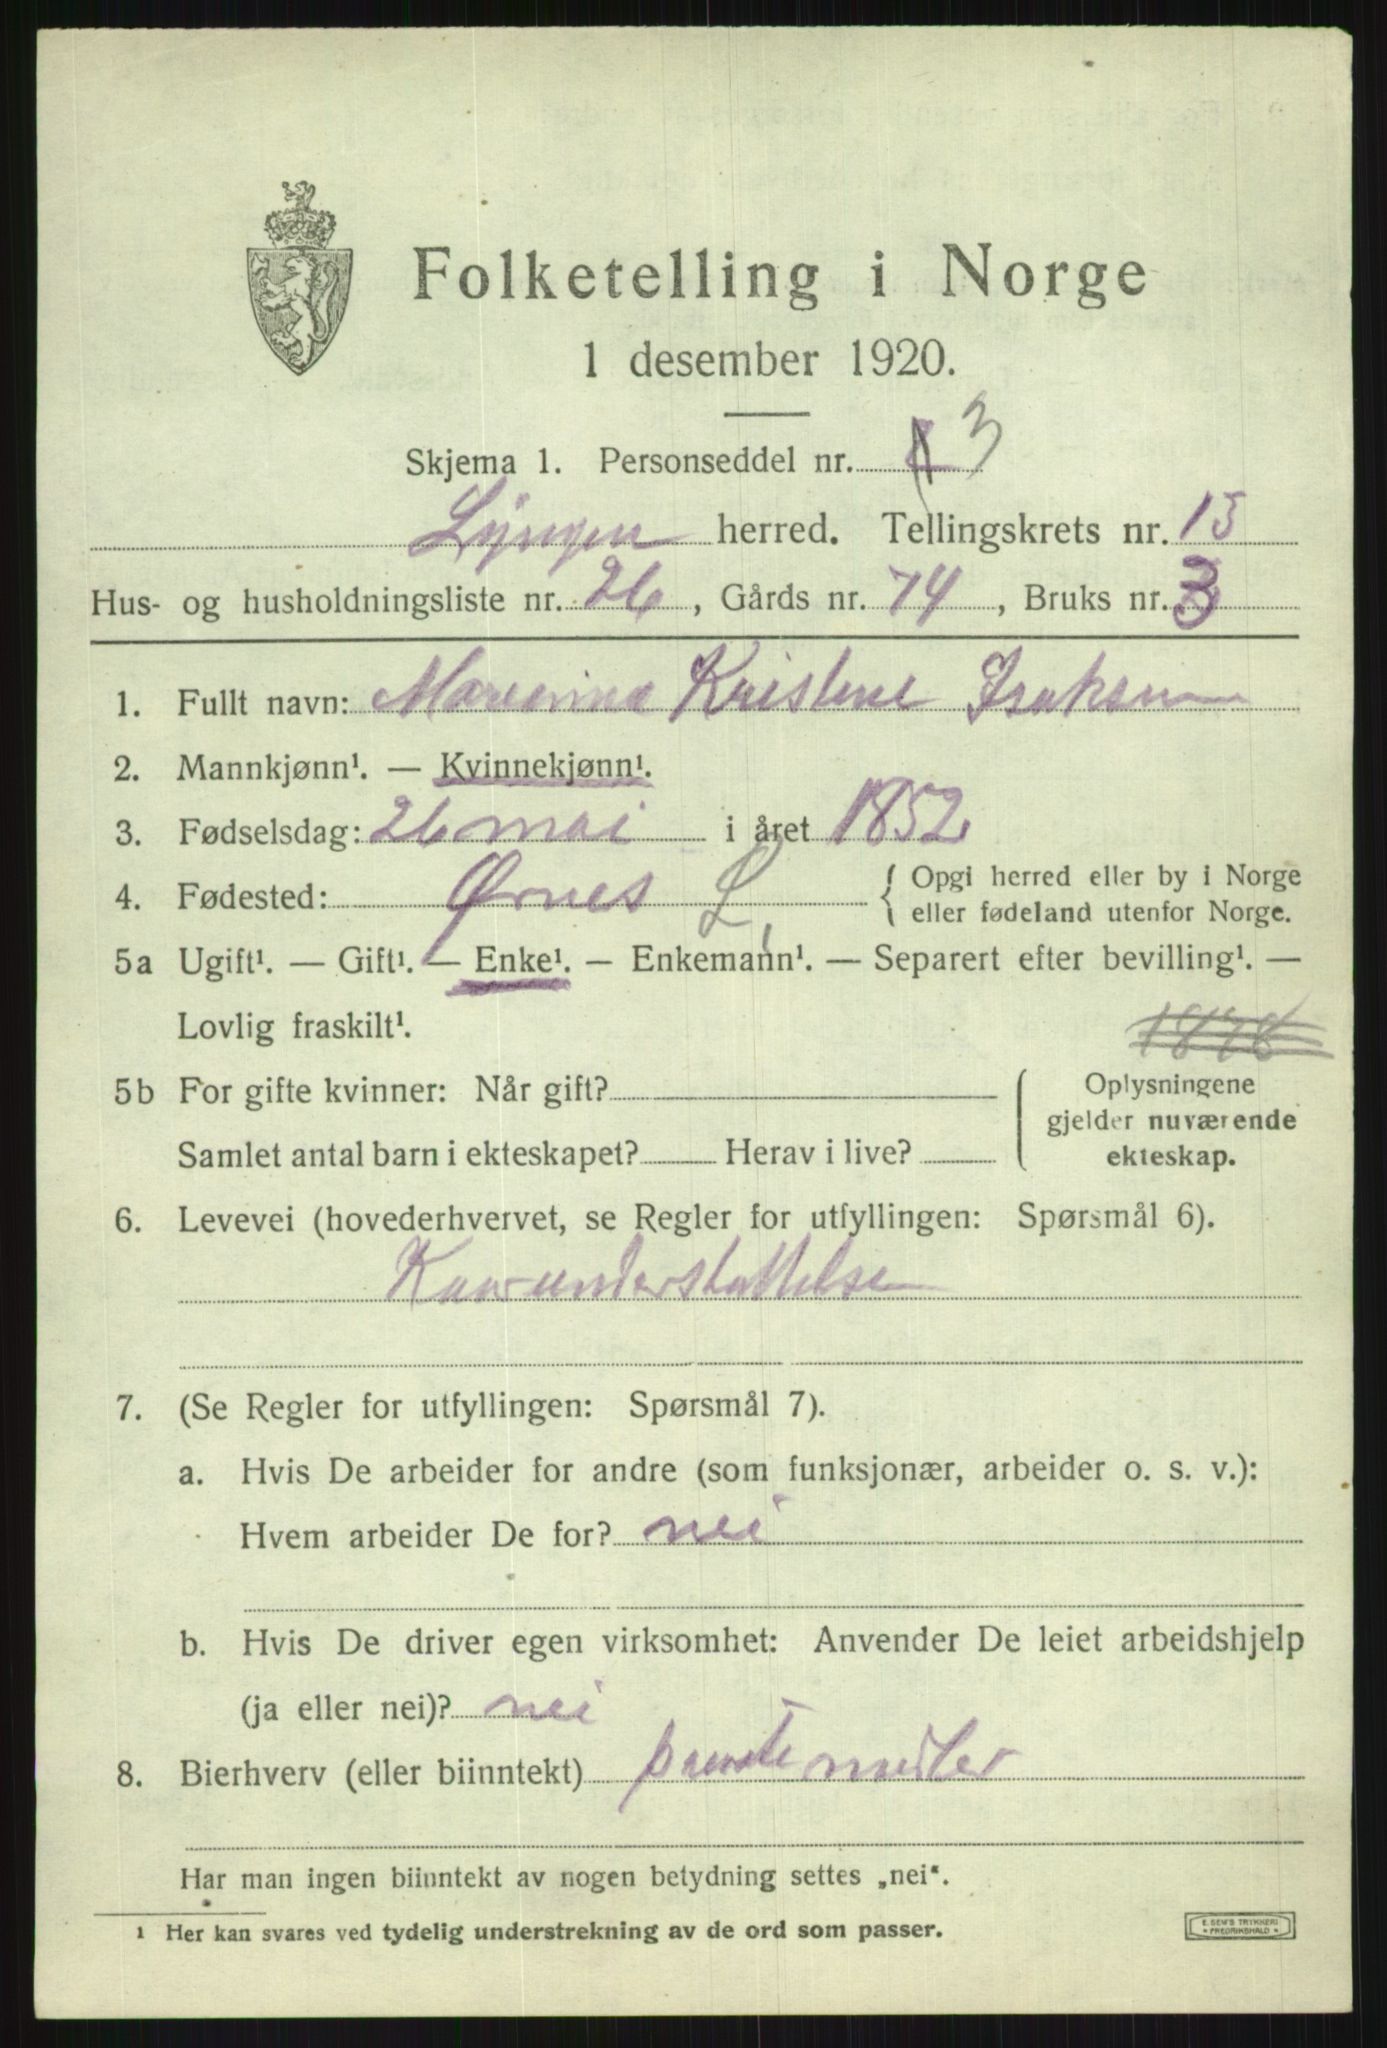 Folketelling i Norge
1 desember 1920.
Skjema 1. Personseddel nr. 3
Lyngen herred. Tellingskrets nr. 15
Hus- og husholdningsliste nr. 26, Gårds nr. 74, Bruks nr. 3
1. Fullt navn: Kristene Isaksen
2. Mannkjønn¹. — Kvinnekjønn¹.
3. Fødselsdag: 26 mai i året 1852
4. Fødested: Ørnes L, { Opgi herred eller by i Norge
eller fødeland utenfor Norge.
5a Ugift¹. — Gift¹. — Enke¹. — Enkemann¹. — Separert efter bevilling¹. —
Lovlig fraskilt¹.
1878
5b For gifte kvinner: Når gift? Oplysningene
gjelder nuværende
Samlet antal barn i ekteskapet? Herav i live? ekteskap.
6. Levevei (hovederhvervet, se Regler for utfyllingen: Spørsmål 6).
understøttelse
7. (Se Regler for utfyllingen: Spørsmål 7).
a. Hvis De arbeider for andre (som funksjonær, arbeider o. s. v.):
Hvem arbeider De for? nei
b. Hvis De driver egen virksomhet: Anvender De leiet arbeidshjelp
(ja eller nei)? nei
8. Bierhverv (eller biinntekt) private midler
Har man ingen biinntekt av nogen betydning settes „nei“.
¹ Her kan svares ved tydelig understrekning av de ord som passer.
E. SEM'S TRYKKERI
FREDRIKSHALD